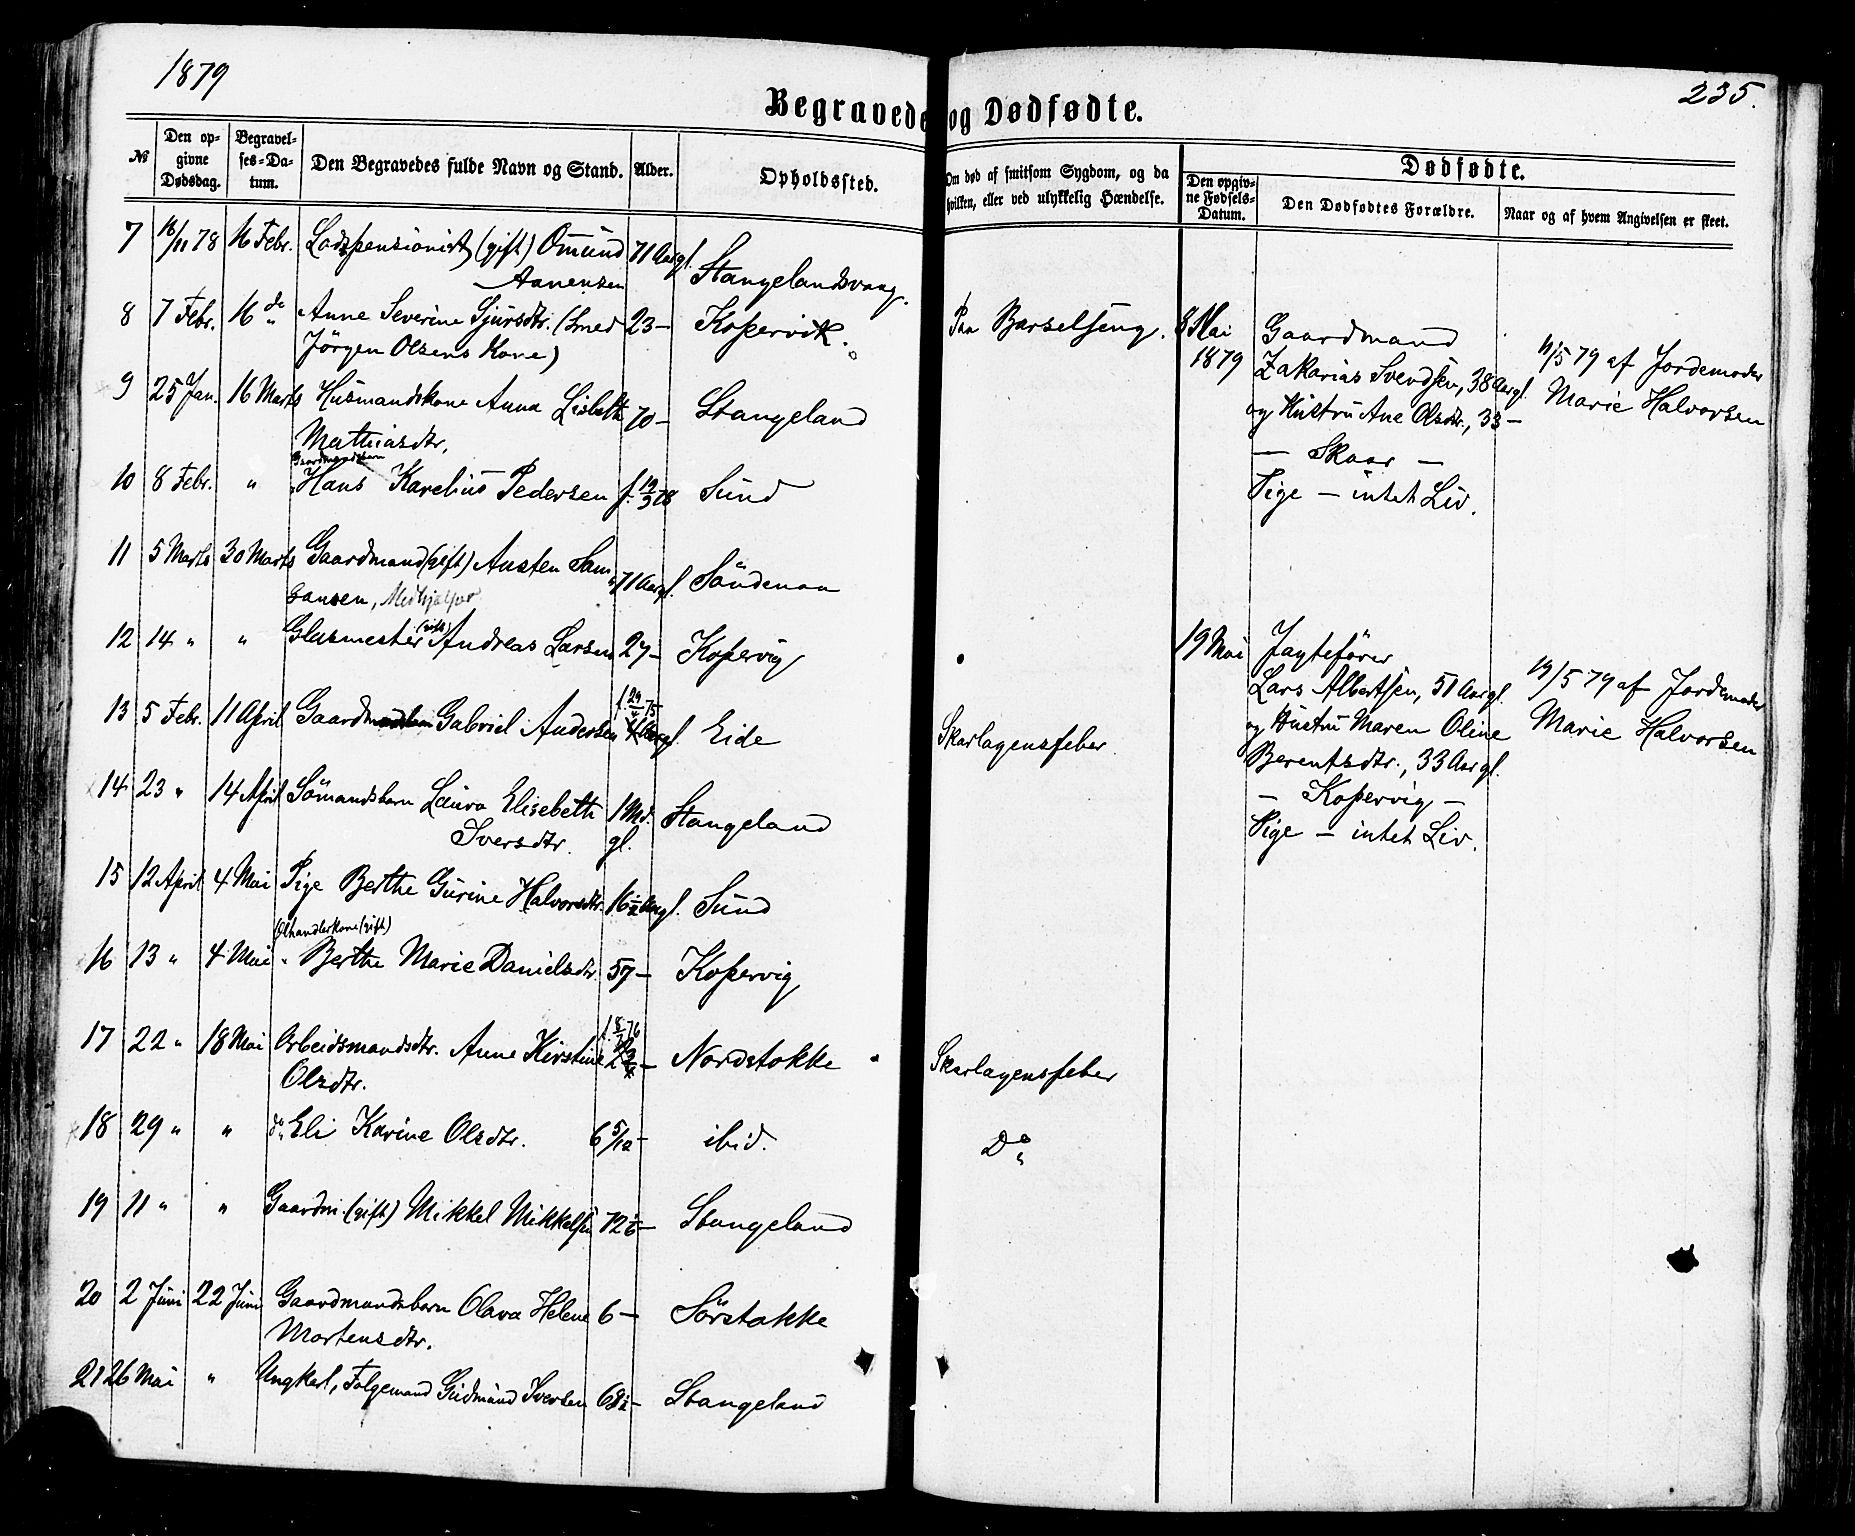 1879
235.
Begravede og Dødfødte.
№
Den opgivne Dødsdag.
Begravelses-Datum.
Den Begravedes fulde Navn og Stand.
Alder.
Opholdssted.
Om død af smitsom Sygdom, og da hvilken, eller ved ulykkelig Hændelse.
Dødfødte.
Den opgivne Fødsels-Datum.
Den Dødfødtes Forældre.
Naar og af hvem Angivelsen er skeet.
7 16/11 78 16 Febr. (gift) Omund 71 Aargl. Stangelandsvaag.
Aanensen
8 7 Febr. 16 do Anne Severine Sjursdtr. (Smed 23 — Kopervik. Paa Barselseng.
Jörgen Olsens Kone)
9 25 Jan. 16 Marts Husmandskone Anna Lisbeth 70 — Stangeland
Mathiasdtr.
10 8 Febr. " Gaardmandsbarn Hans Karelius Pedersen f. 19/3 78 Sund
11 5 Marts 30 Marts Gaardmand (gift) Austen Sam 71 Aargl. Söndenaa
sansen, Medhjælper
12 14 " " Glasmester (gift) Andreas Larsen 27 — Kopervig
13 5 Febr. 11 April Gabriel Andersen f. 29/4 75 Eide Skarlagensfeber.
14 23 " 14 April Sömandsbarn Laura Elisebeth 1 Md. gl. Stangeland
Iversdtr.
15 12 April 4 Mai Pige Berthe Gurine Halvorsdtr. 16 1/2 Aargl. Sund
16 13 " 4 Mai (gift) Berthe Marie Danielsdtr. 57 — Kopervig
17 22 " 18 Mai Arbeidsmandsdtr. Anne Kirstine Nordstokke Skarlagensfeber
Olsdtr.
18 29 " " do Eli Karine Olsdtr. 6 5/12 — ibid. Do
19 11 " " Gaardm. (gift) Mikkel Mikkelsen 72 — Stangeland
20 2 Juni 22 Juni Gaardmandsbarn Olava Helene 6 — Sörstokke
Mortensdtr.
21 26 Mai " Ungkarl, Gudmund Iversen 68 1/2 — Stangeland
8 Mai 1879
Gaardmand
Zakarias Svendsen, 38 Aargl.
og Hustru Ane Olsdtr., 33 —
— Skaar —
Pige — intet Liv.
11/5 79 af Jordemoder
Marie Halvorsen
19 Mai
Jagtefører
Lars Albertsen, 51 Aargl.
og Hustru Maren Oline
Berentsdtr., 33 Aargl.
— Kopervig —
Pige — intet Liv.
19/5 79 af Jordemoder
Marie Halvorsen